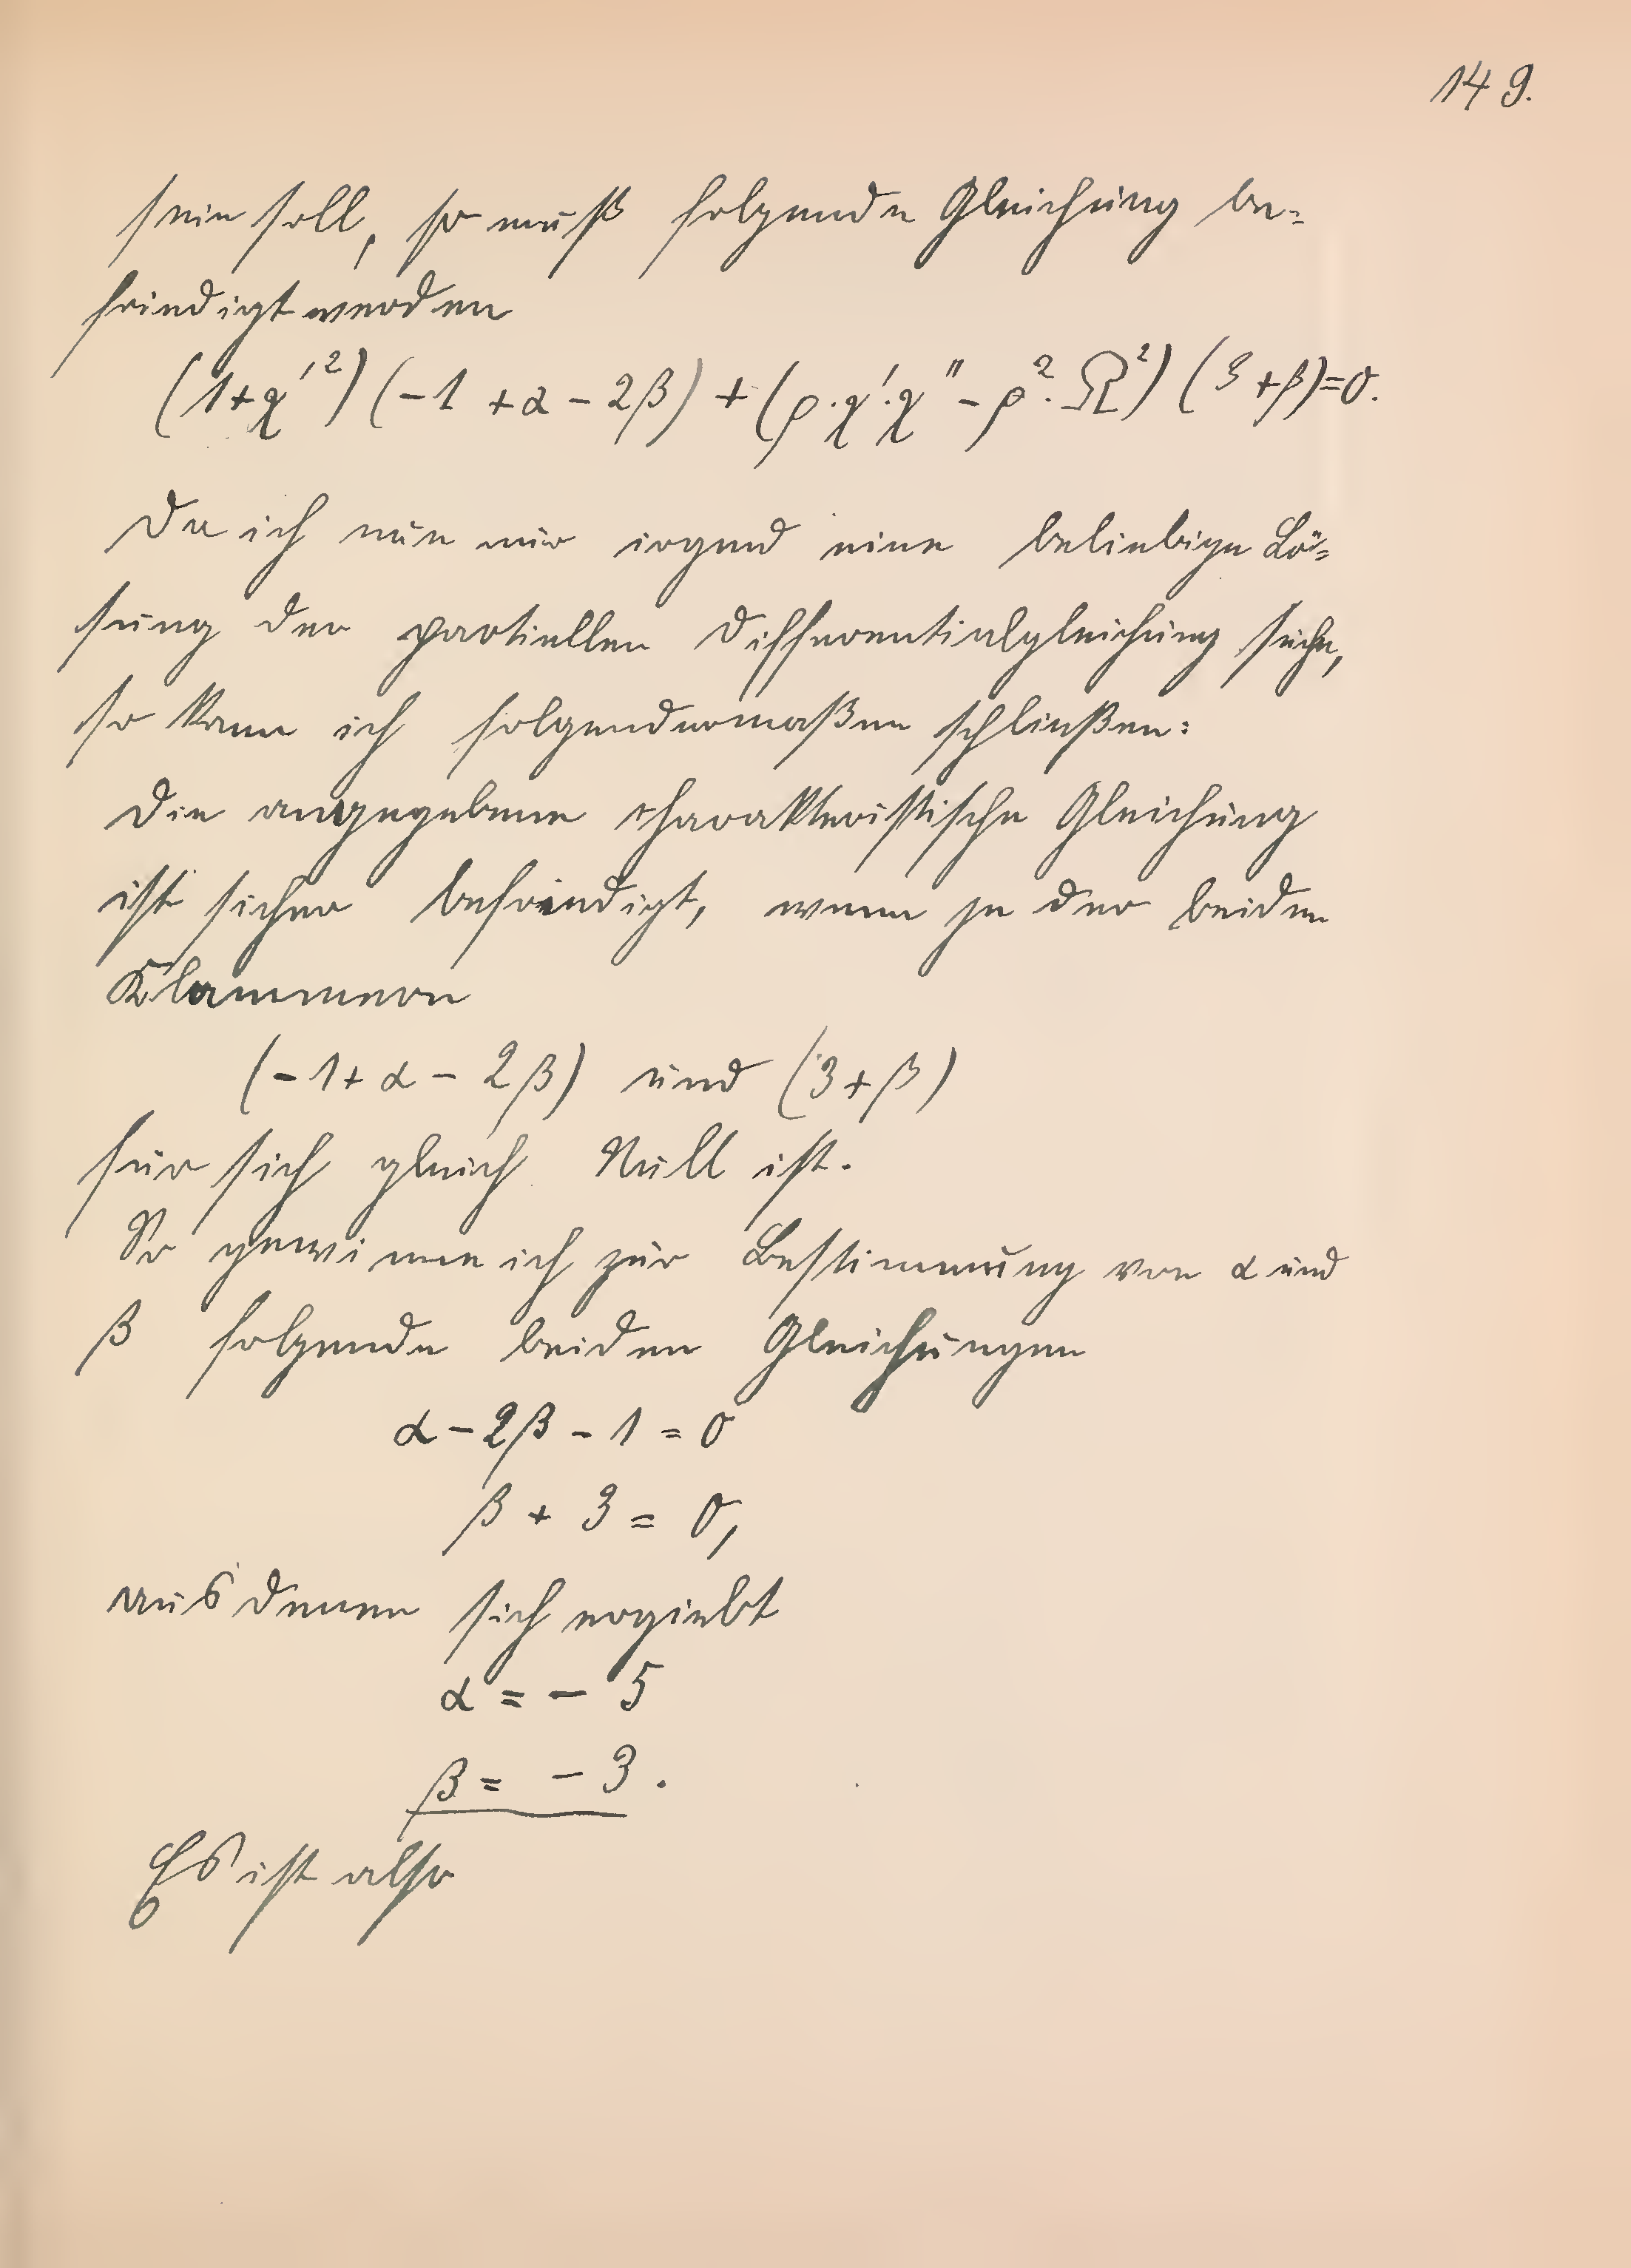 149.
sein soll, so muß folgende Gleichung be=
friedigt werden
(1+χ'²)(-1+α-2β)+(ρ·χ'·χ''-ρ²·Ω²)(3+β)=0.
Da ich nun nur irgend eine beliebige Lö=
sung der partiellen Differentialgleichung suche,
so kann ich folgendermaßen schließen:
Die angegebene charakteristische Gleichung
ist sicher befriedigt, wenn je der beiden
Klammern
(-1+α-2β) und (3+β)
für sich gleich Null ist.
So gewinne ich zur Bestimmung von α und
β folgende beiden Gleichungen
α-2β-1=0
β+3=0,
aus denen sich ergiebt
α=-5
β=-3.
Es ist also